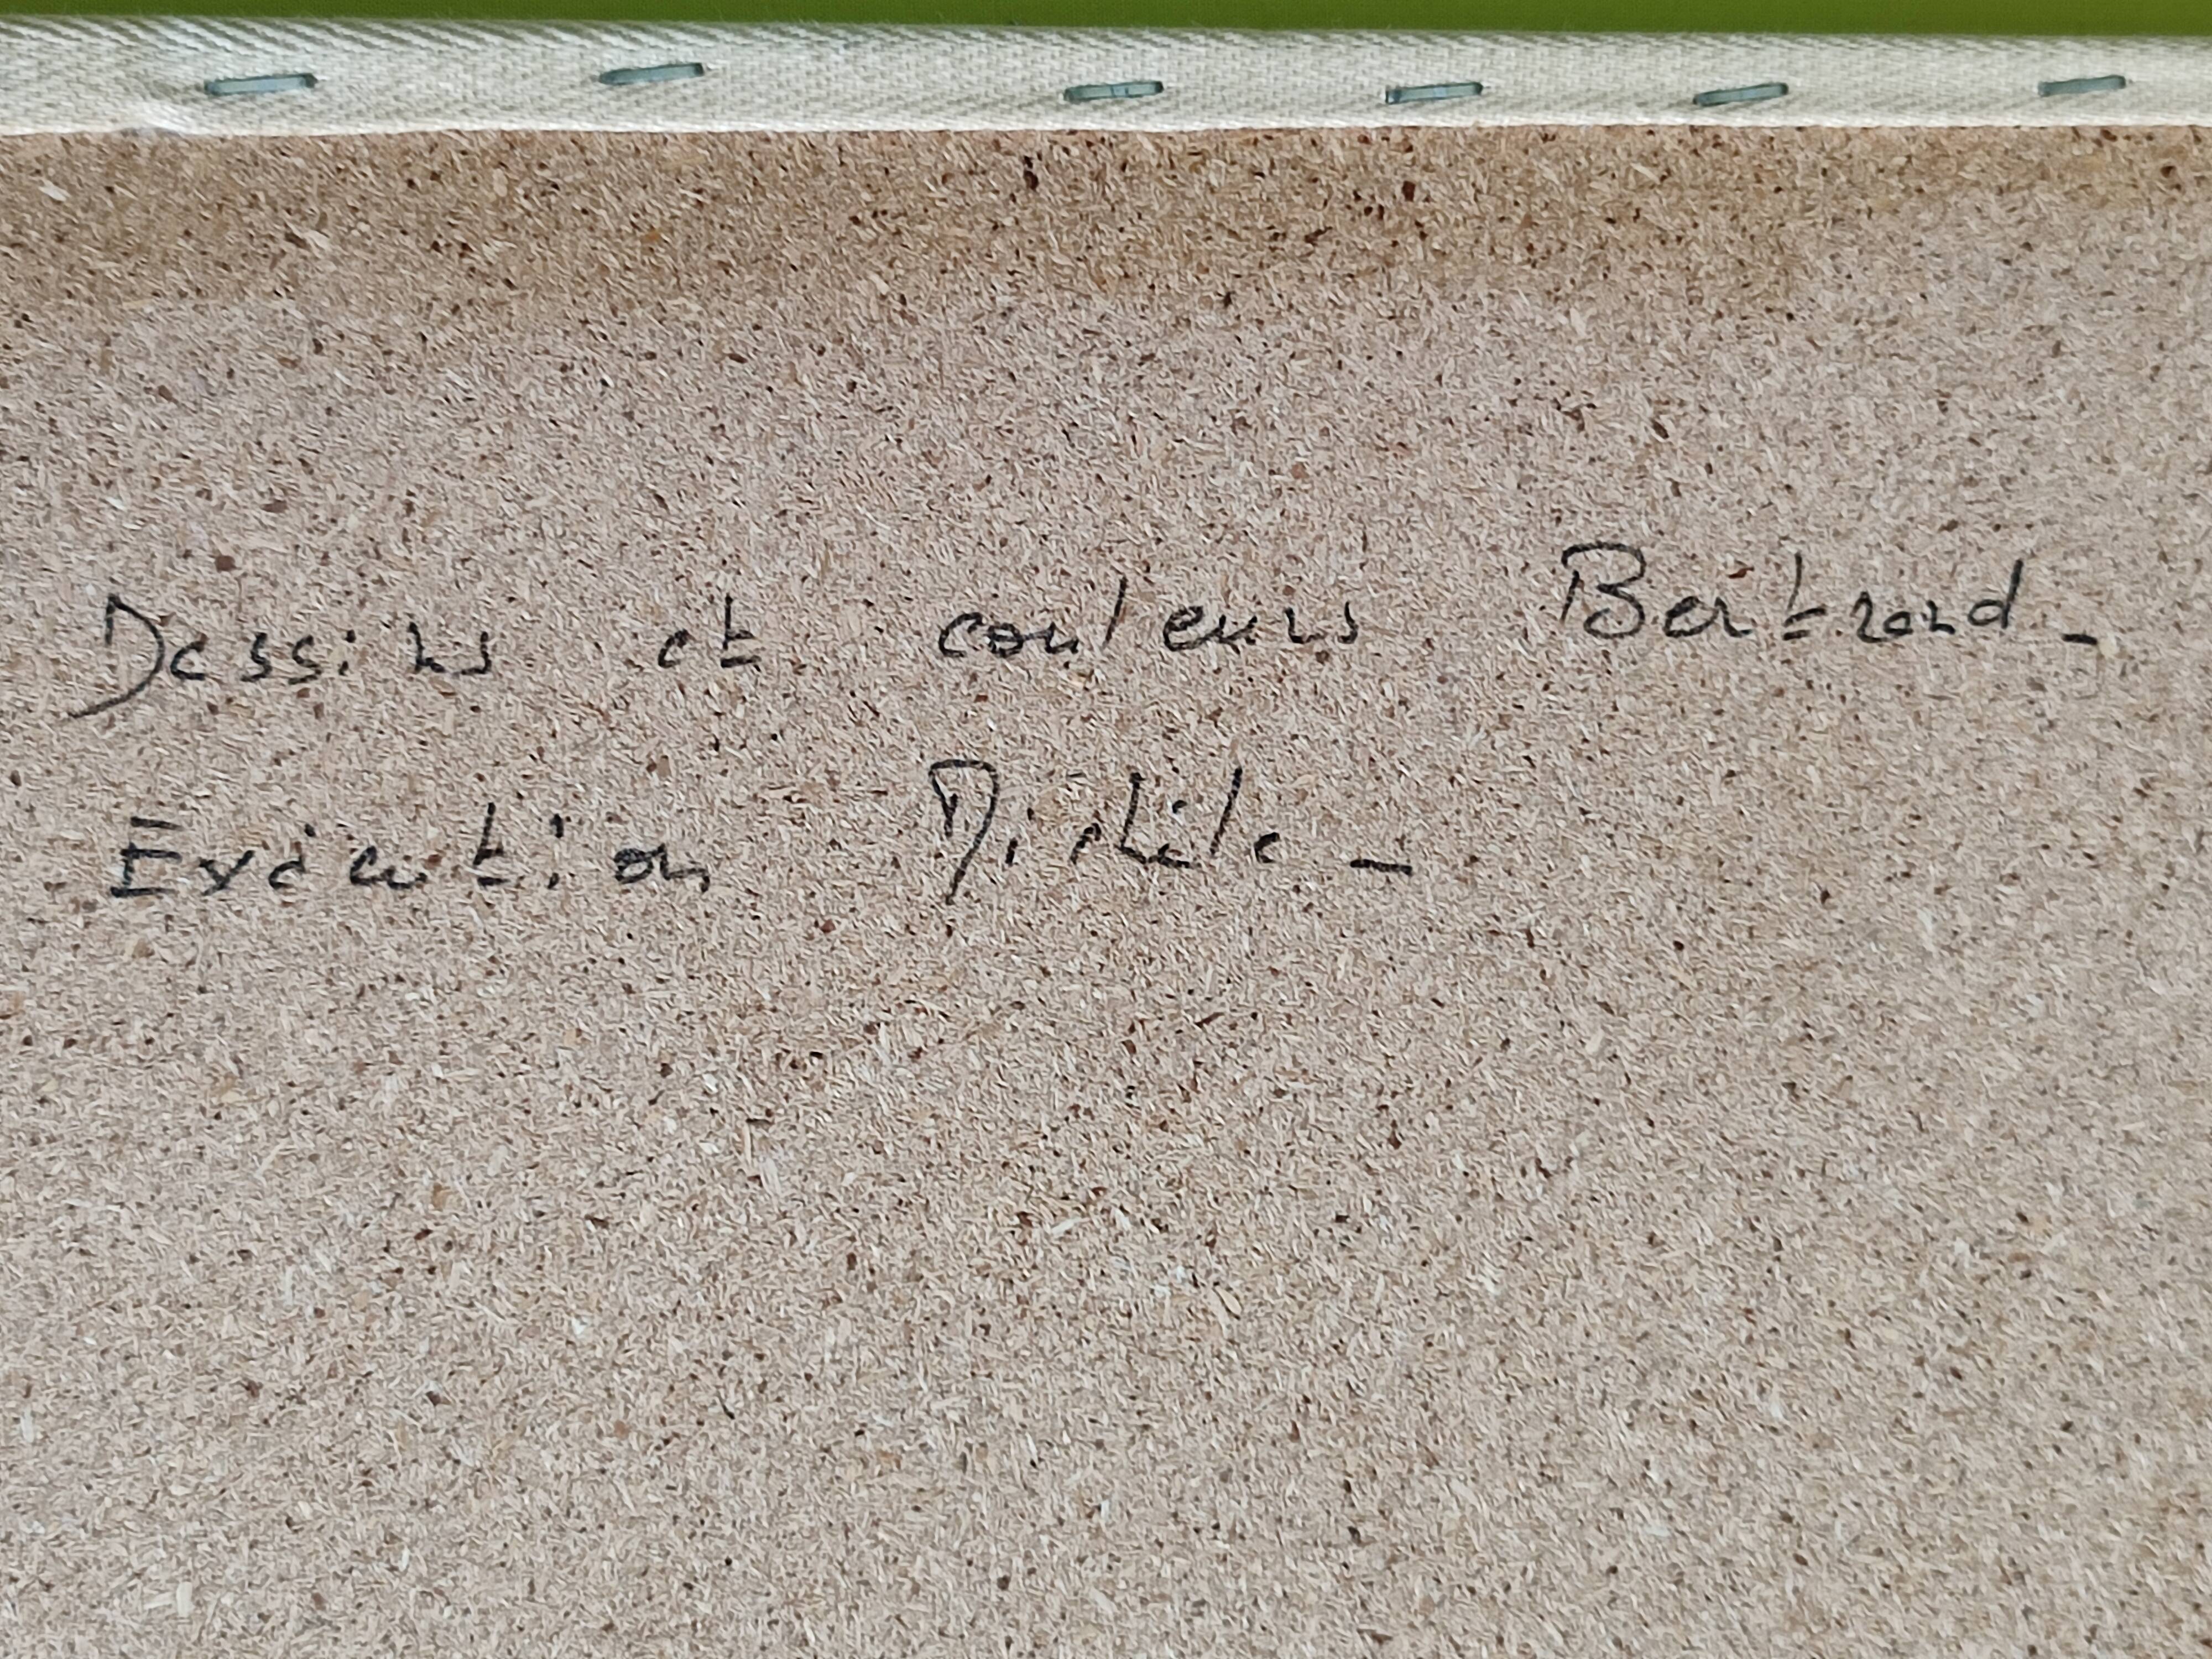 Dessins et couleurs Bertrand_
Exécution Michèle_